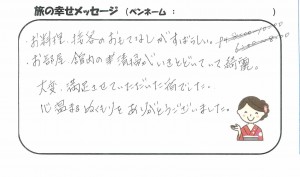 旅の幸せメッセージ (ペンネーム : )
・お料理、接客のおもてなしがすばらしい。
・お部屋、館内の清掃がいきとどいていて綺麗。
大変、満足させていただいた宿でした。
心温まるぬくもりをありがとうございました。